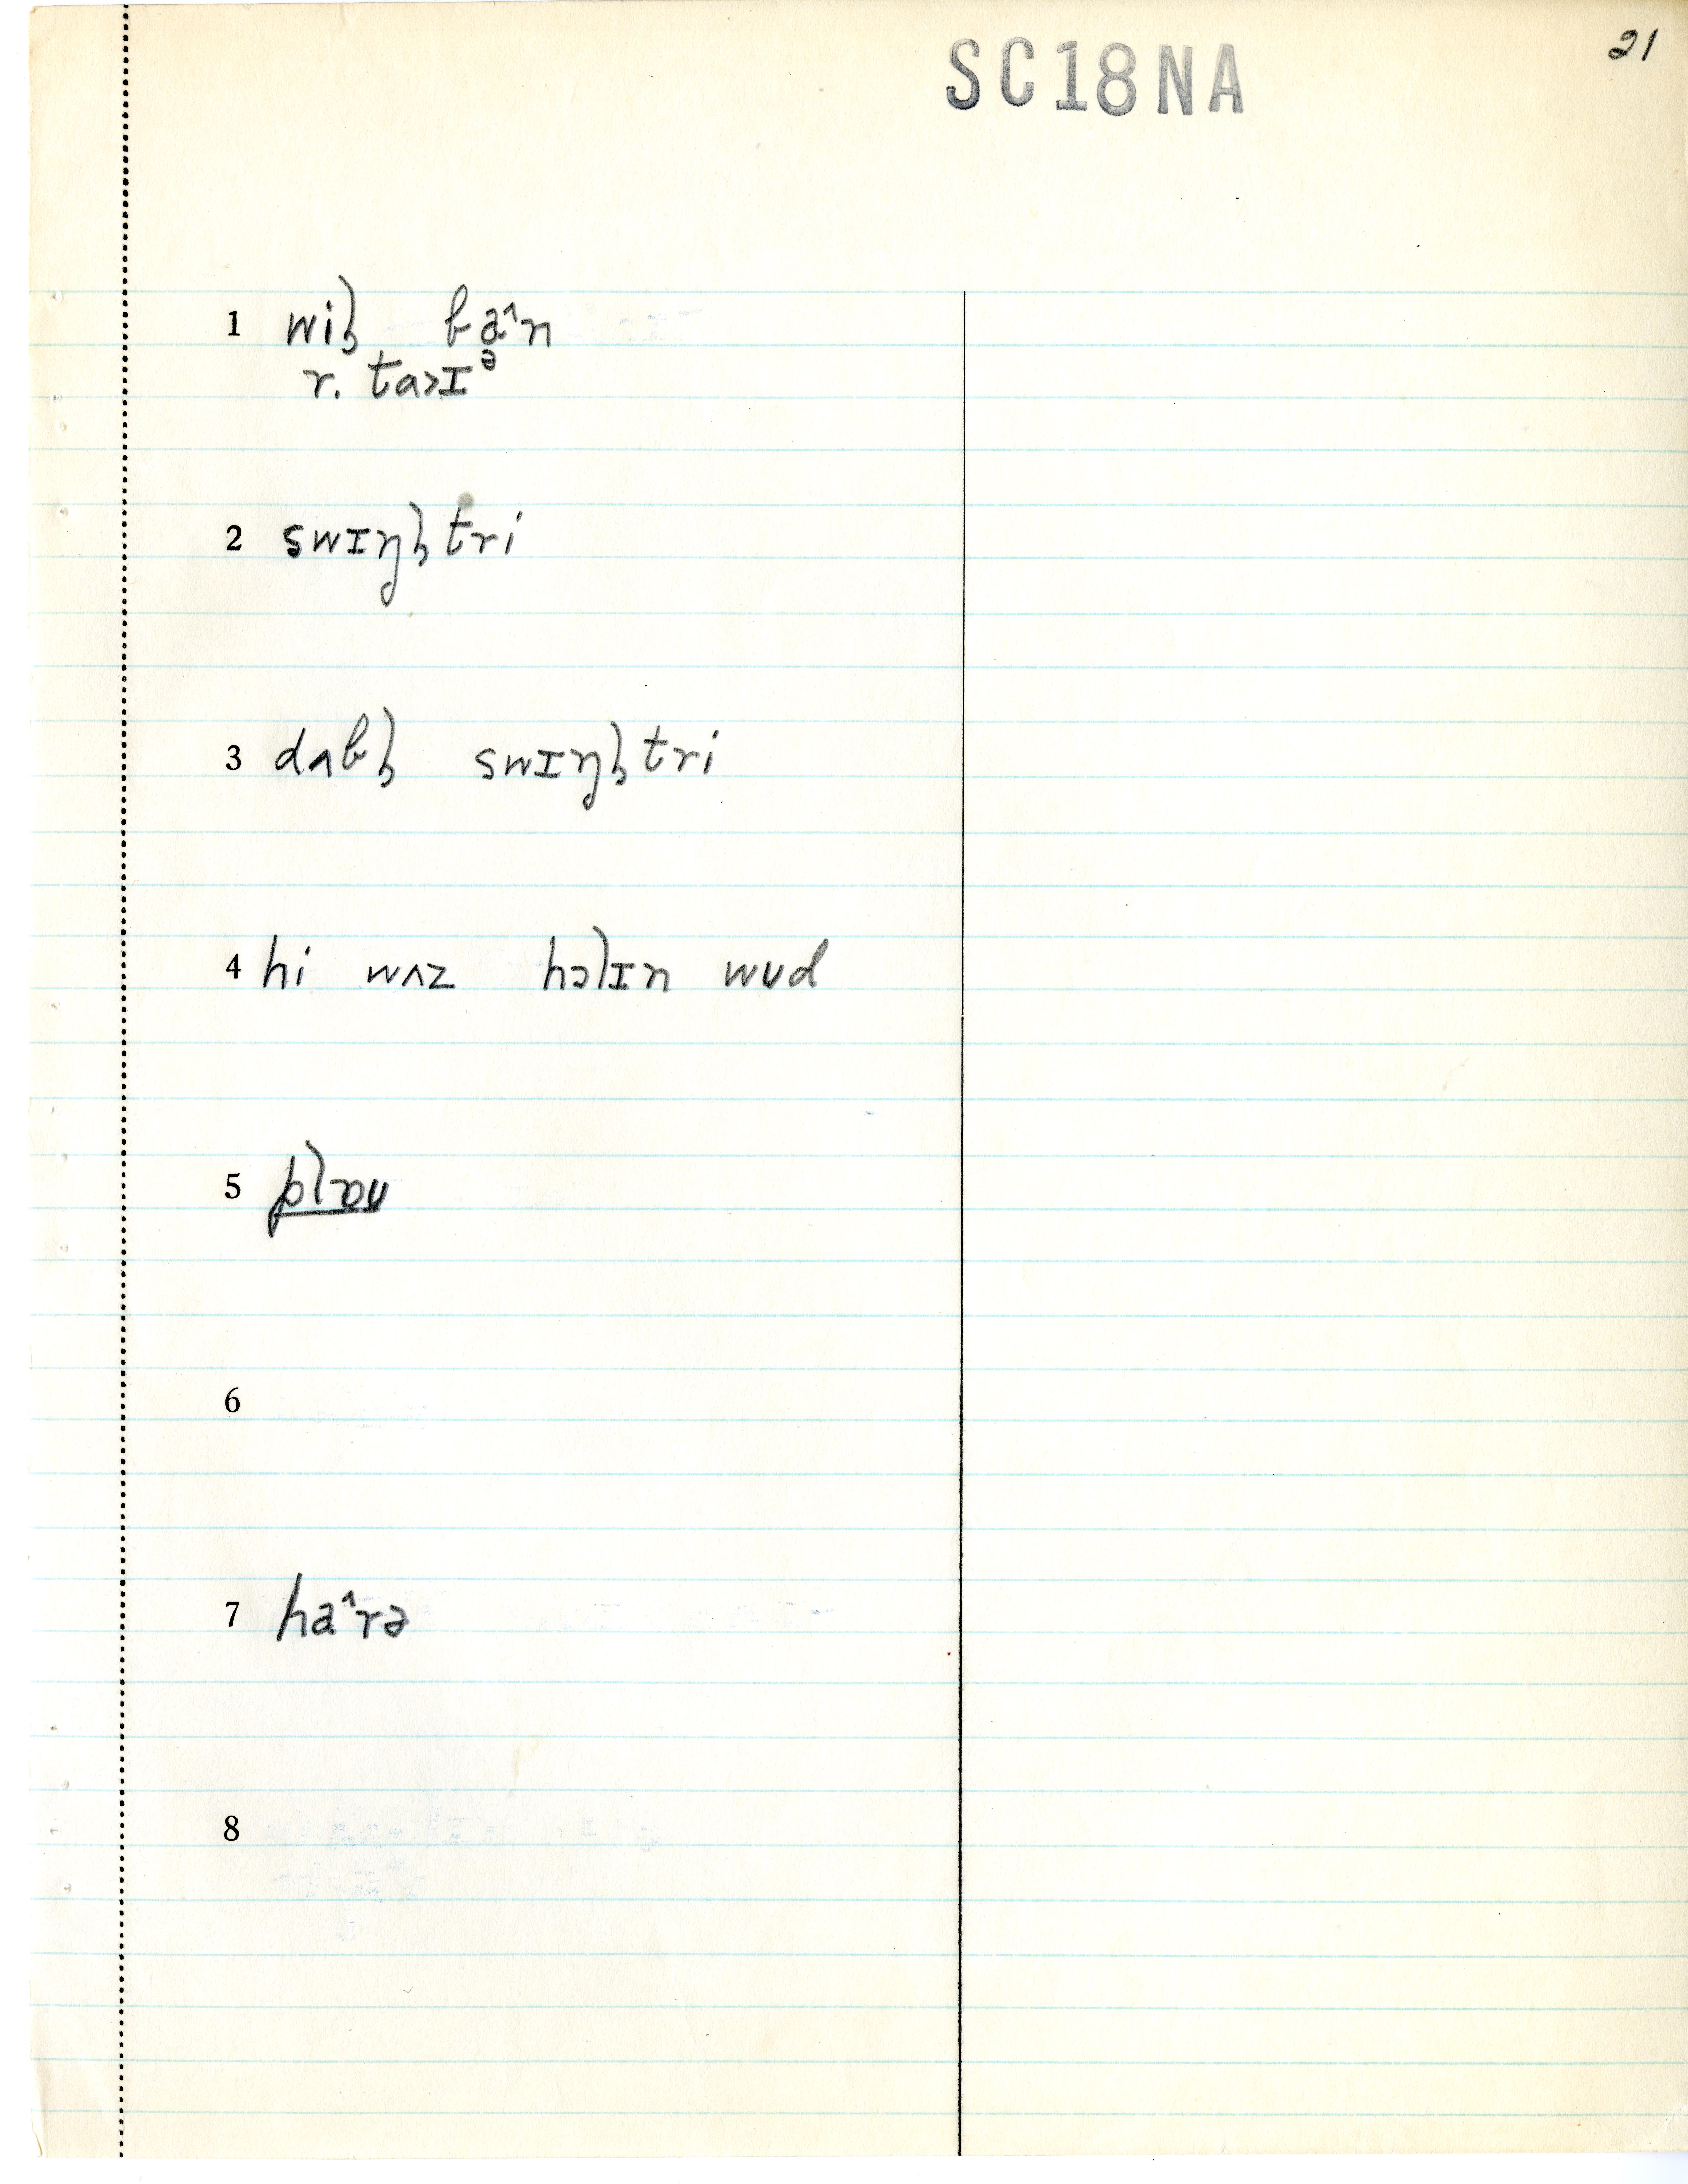 21
SC18NA
1 wil̩ ba˄n
r. ta>ɪᵊ
2 swɪŋl̩tri
3 dʌbl̩ swɪŋl̩tri
4 hi wʌz hɔlɪn wʊd
5 plɒʊ
6
7 ha˄rə
8